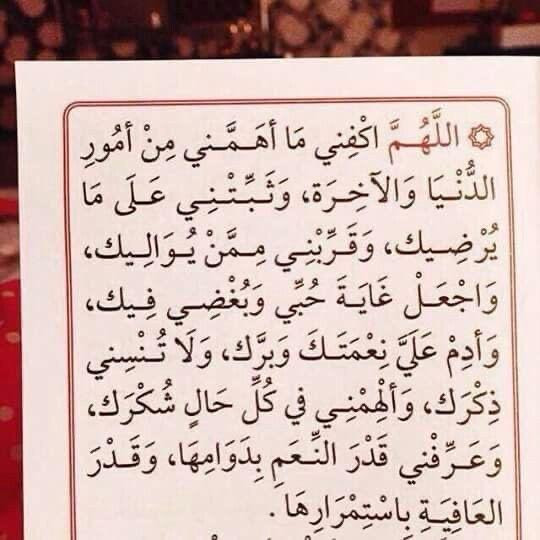 ۞ اللَّهُمَّ اكْفِني مَا أهَمَّني مِنْ أمُورِ
الدُّنْيَا وَالآخِرَة، وَثَبِّتْنِي عَلَى مَا
يُرْضِيك، وَقَرِّبْنِي مِمَّنْ يُوَالِيك،
وَاجْعَلْ غَايَةَ حُبِّي وَبُغْضِي فِيك،
وَأدِمْ عَلَيَّ نِعْمَتَكَ وَبرَّك، وَلَا تُنْسِني
ذِكْرَك، وَألْهِمْنِي في كُلِّ حَالٍ شُكْرَك،
وَعَرِّفْني قَدْرَ النِّعَمِ بِدَوَامِهَا، وَقَدْرَ
العَافِيَةِ بِاسْتِمْرَارِهَا .